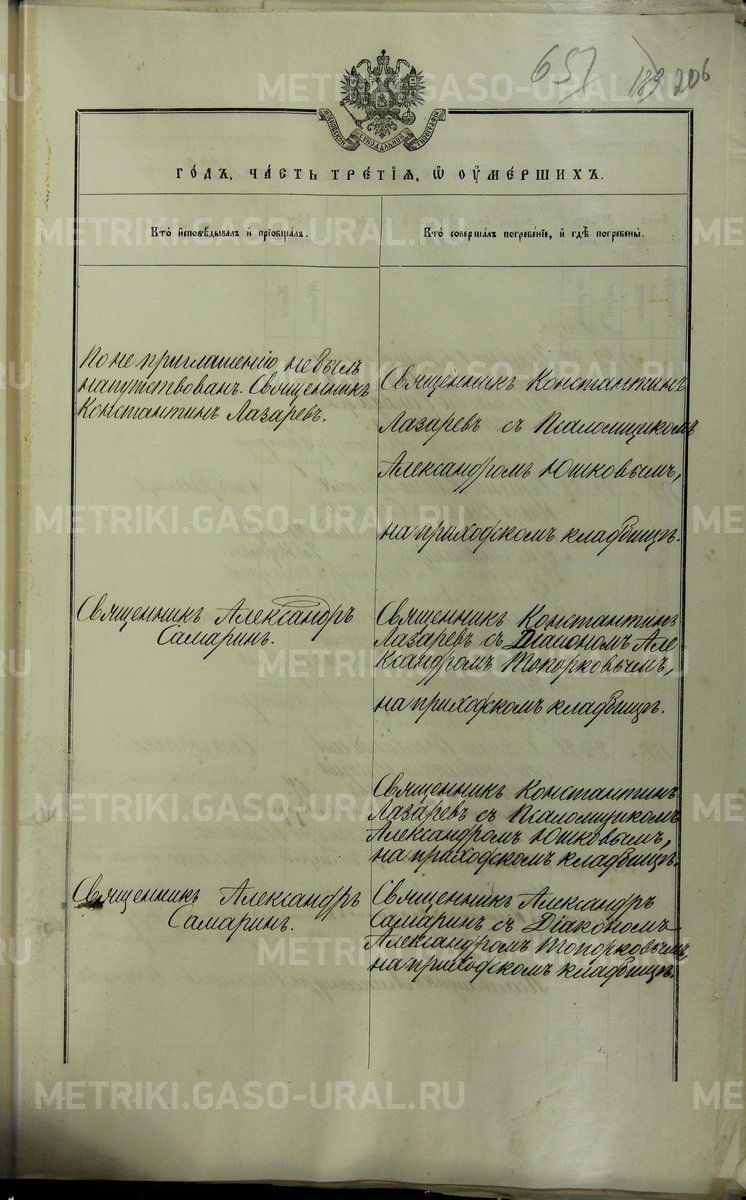 651 183 206
МОСКОВСКОЙ СѴНОДАЛЬНОЙ ТИПОГРАФІИ
ГО́ДЪ, ЧА́СТЬ ТРЕ́ТІѦ, Ѽ ОУМЕ́РШИХЪ.
Кто̀ и҆сповѣ́дывалъ и҆ прїѻбща́лъ.
Кто̀ соверша́лъ погребе́нїе, и҆ гдѣ̀ погребены̀.
По не приглашенію не былъ
напутствован. Священникъ
Константинъ Лазаревъ.
Священникъ Константинъ
Лазаревъ съ Псаломщикомъ
Александромъ Юшковымъ,
на приходскомъ кладбищѣ.
Священникъ Александръ
Самаринъ.
Священникъ Константинъ
Лазаревъ съ Діакономъ Але
ксандромъ Топорковымъ,
на приходскомъ кладбищѣ.
Священникъ Константинъ
Лазаревъ съ Псаломщикомъ
Александромъ Юшковымъ,
на приходскомъ кладбищѣ.
Священникъ Александръ
Самаринъ.
Священникъ Александръ
Самаринъ съ Діакономъ
Александромъ Топорковымъ,
на приходскомъ кладбищѣ.
METRIKI.GASO-URAL.RU